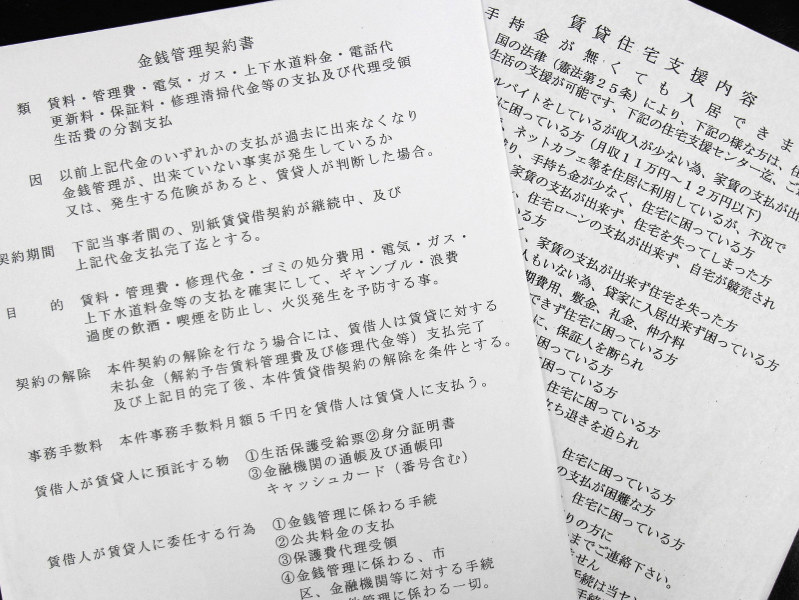 金銭管理契約書
類 賃料・管理費・電気・ガス・上下水道料金・電話代
更新料・保証料・修理清掃代金等の支払及び代理受領
生活費の分割支払
因 以前上記代金のいずれかの支払が過去に出来なくなり
金銭管理が、出来ていない事実が発生しているか
又は、発生する危険があると、賃貸人が判断した場合。
契約期間 下記当事者間の、別紙賃貸借契約が継続中、及び
上記代金支払完了迄とする。
目 的 賃料・管理費・修理代金・ゴミの処分費用・電気・ガス・
上下水道料金等の支払を確実にして、ギャンブル・浪費
過度の飲酒・喫煙を防止し、火災発生を予防する事。
契約の解除 本件契約の解除を行なう場合には、賃借人は賃貸に対する
未払金（解約予告賃料管理費及び修理代金等）支払完了
及び上記目的完了後、本件賃貸借契約の解除を条件とする。
事務手数料 本件事務手数料月額５千円を賃借人は賃貸人に支払う。
賃借人が賃貸人に預託する物 ①生活保護受給票②身分証明書
③金融機関の通帳及び通帳印
キャッシュカード（番号含む）
賃借人が賃貸人に委任する行為 ①金銭管理に係わる手続
②公共料金の支払
③保護費代理受領
④金銭管理に係わる、市
区、金融機関等に対する手続
管理に係わる一切。
賃貸住宅支援内容
手持金が無くても入居できま
国の法律（憲法第２５条）により、下記の様な方は、住
生活の支援が可能です、下記の住宅支援センター迄、ご
ルバイトをしているが収入が少ない為、家賃の支払が出
に困っている方（月収１１万円〜１２万円以下）
、ネットカフェ等を住居に利用しているが、不況で
り、手持ち金が少なく、住宅に困っている方
家賃の支払が出来ず、住宅を失ってしまった方
、住宅ローンの支払が出来ず、自宅が競売され
いる方
、家賃の支払が出来ず住宅を失った方
人もいない為、貸家に入居出来ず困っている方
期費用、敷金、礼金、仲介料
できず住宅に困っている方
に、保証人を断られ
困っている方
困っている方
住宅に困っている方
立ち退きを迫られ
住宅に困っている方
の支払が困難な方
、住宅に困っている方
りの方に
までご連絡下さい。
ません
手続は当セン